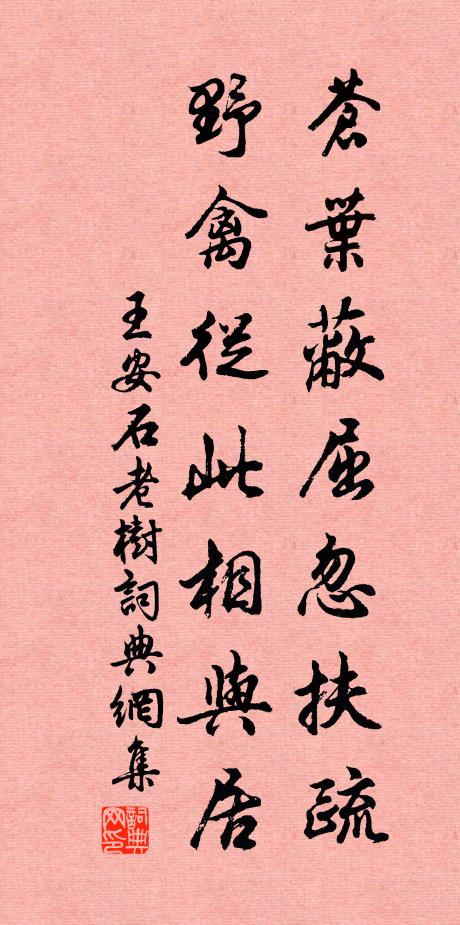 蒼葉蔽屈忽扶疏
野禽從此相與居
王安石老樹詞典網集
詞典网印